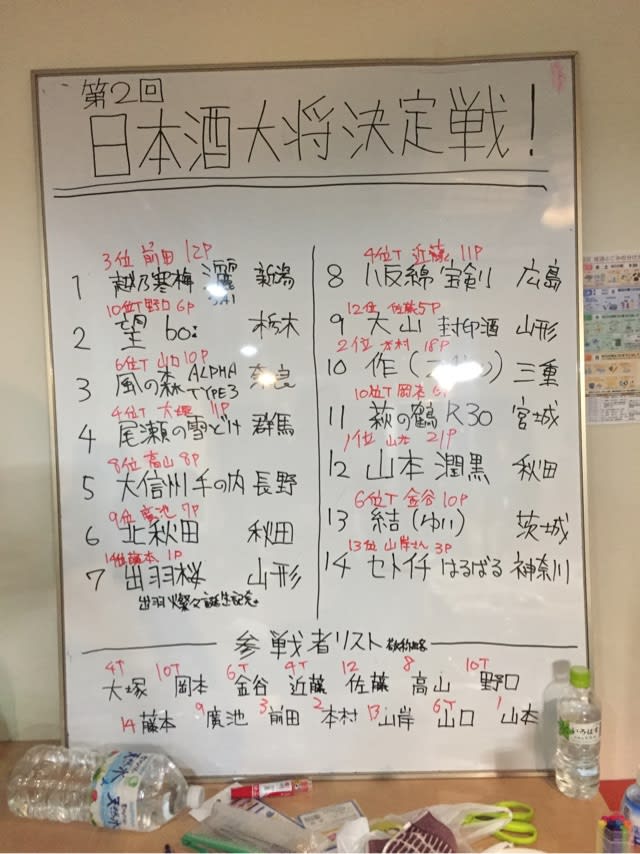 第2回
日本酒大将決定戦!
3位 前田 12P
1 越乃寒梅 灑 新潟
10位T 野口 6P
2 望 60 栃木
6位T 山口 10P
3 風の森 ALPHA TYPE3 奈良
4位T 大塚 11P
4 尾瀬の雪どけ 群馬
8位 高山 8P
5 大信州 手の内 長野
9位 廣池 7P
6 北秋田 秋田
14位 藤本 1P
7 出羽桜 山形
出羽燦々誕生記念
4位T 近藤 11P
8 八反綿 宝剣 広島
12位 佐藤 5P
9 大山 封印酒 山形
2位 本村 18P
10 作 三重
10位T 岡本 6P
11 萩の鶴 R30 宮城
1位 山本 21P
12 山本 潤黒 秋田
6位T 金谷 10P
13 結(ゆい) 茨城
13位 山岸さん 3P
14 セトイチ はるばる 神奈川
参戦者リスト 敬称略
4T 10T 6T 4T 12 8 10T
大塚 岡本 金谷 近藤 佐藤 高山 野口
14 藤本 9 廣池 3 前田 2 本村 13 山岸 6T 山口 1 山本
天然水
い・ろ・は・す